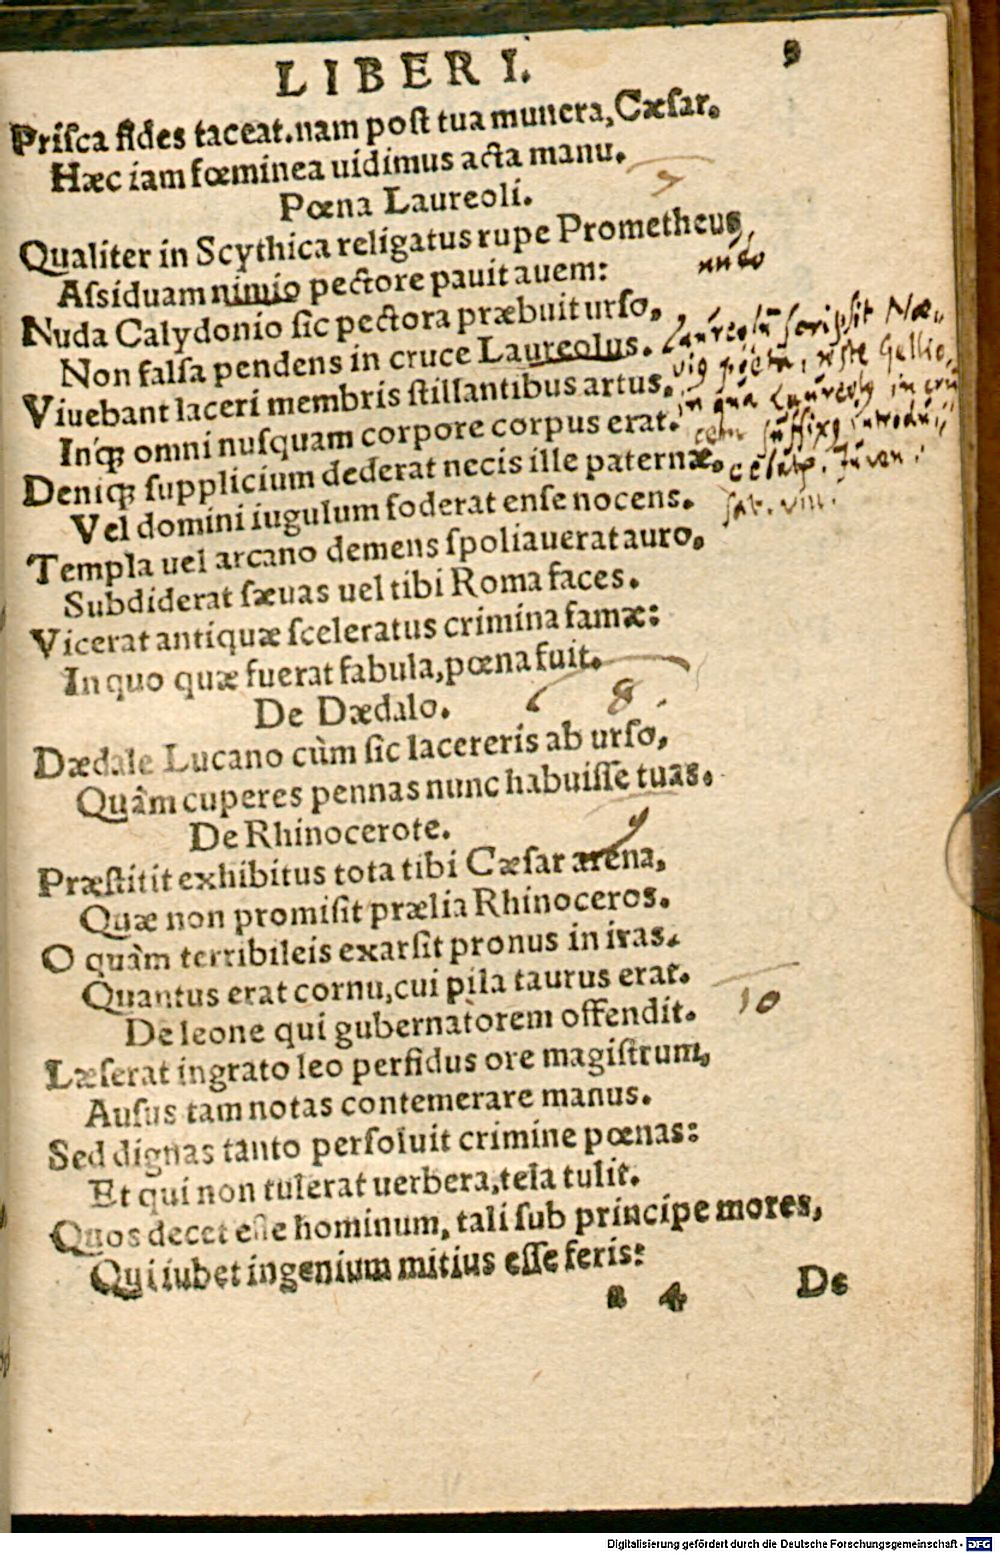 LIBER I. 9
Priſca fides taceat.nam poſt tua munera,Cæſar.
Hæc iam fœminea uidimus acta manu.
7
Pœna Laureoli.
Qualiter in Scythica religatus rupe Prometheus,
nudo
Aſsiduam nimio pectore pauit auem:
Nuda Calydonio ſic pectora præbuit urſo,
Laureolũ ſcripſit Næ-
Non falſa pendens in cruce Laureolus.
uiꝰ poeta, teſte Gellio,
Viuebant laceri membris ſtillantibus artus,
in qua Laureolꝰ in cru
Inq́; omni nuſquam corpore corpus erat.
cem ſuffixꝰ introdu-
Deniq; ſupplicium dederat necis ille paternæ,
Juuen.
Vel domini iugulum foderat enſe nocens.
ſat. viii.
Templa uel arcano demens ſpoliauerat auro,
Subdiderat ſæuas uel tibi Roma faces.
Vicerat antiquæ ſceleratus crimina famæ:
In quo quæ fuerat fabula,pœna fuit.
De Dædalo. 8
Dædale Lucano cùm ſic lacereris ab urſo,
Quàm cuperes pennas nunc habuiſſe tuas.
De Rhinocerote. 9
Præſtitit exhibitus tota tibi Cæſar arena,
Quæ non promiſit prælia Rhinoceros.
O quàm terribileis exarſit pronus in iras.
Quantus erat cornu,cui pila taurus erat.
De leone qui gubernatorem offendit. 10
Læſerat ingrato leo perfidus ore magiſtrum,
Auſus tam notas contemerare manus.
Sed dignas tanto perſoluit crimine pœnas:
Et qui non tulerat uerbera,tela tulit.
Quos decet eſſe hominum, tali ſub principe mores,
Qui iubet ingenium mitius eſſe feris:
a 4 De
Digitalisierung gefördert durch die Deutsche Forschungsgemeinschaft - DFG